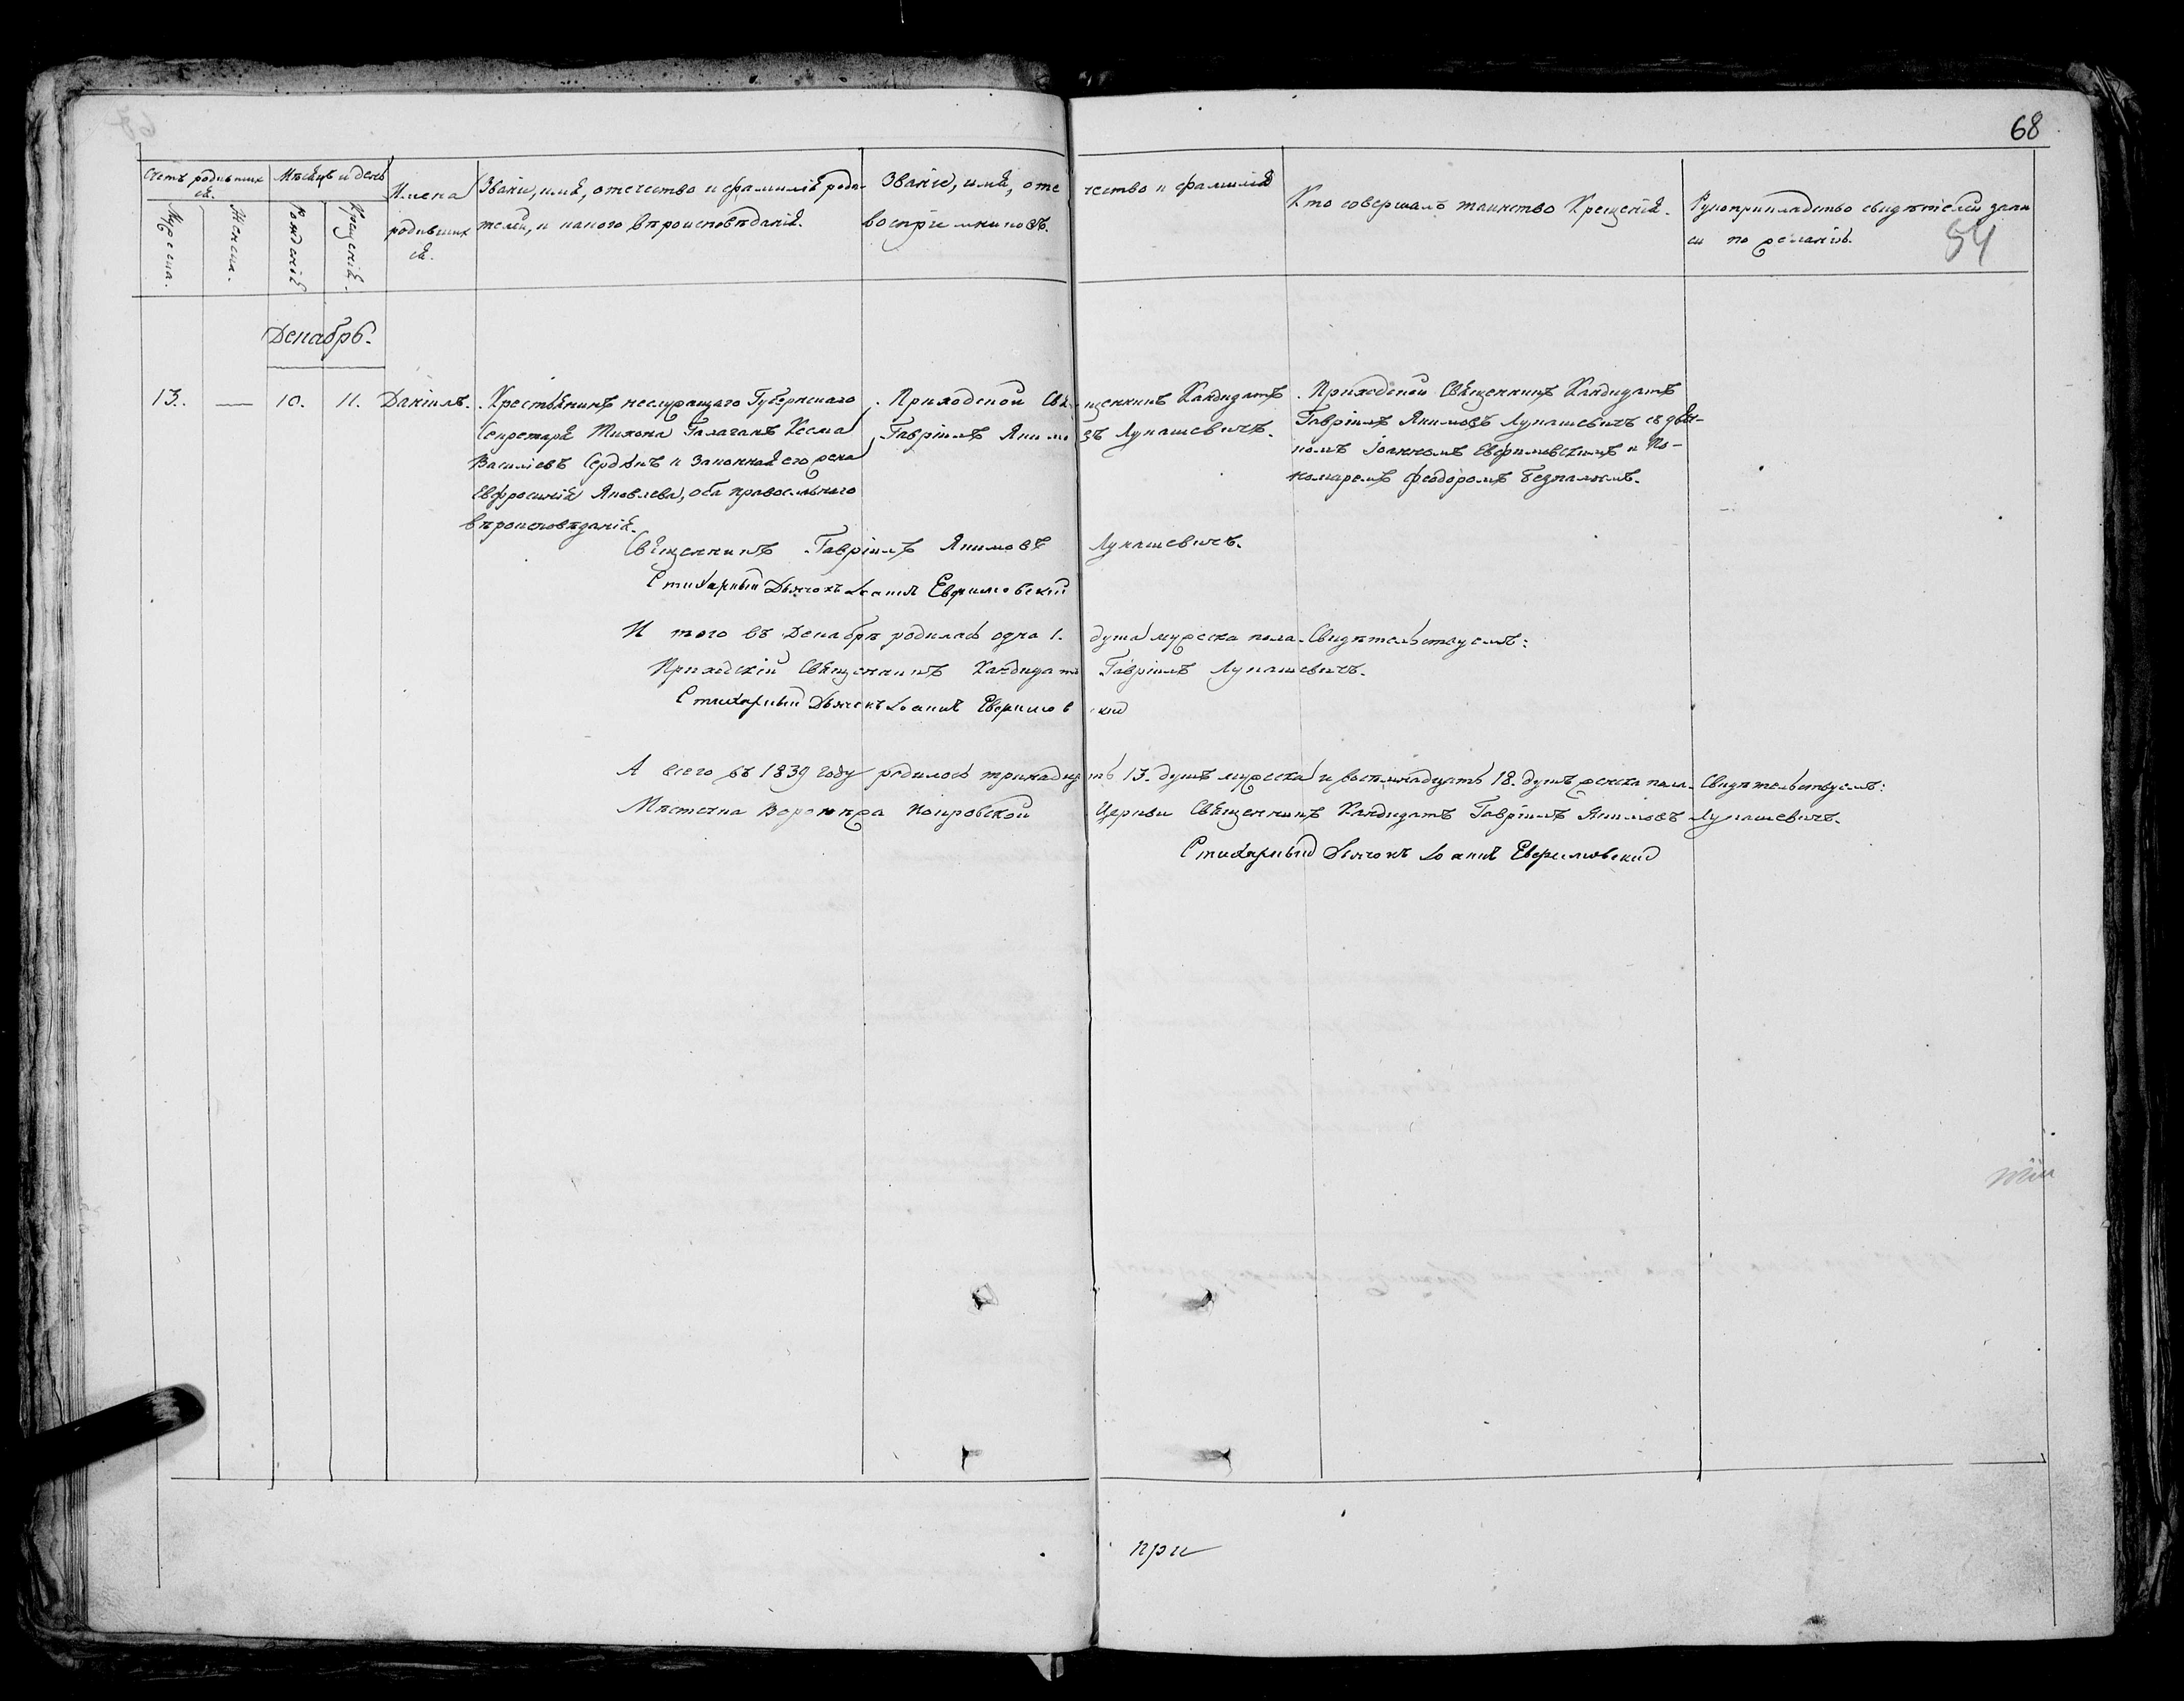 68
Счетъ родивших
ся.
Мѣсяцъ и день
Имена
родивших
ся.
Званіе, имя, отечество и фамилія роди-
телей, и какого вѣроисповѣданія.
Званіе, имя, оте чество и фамилія
воспріемниковъ.
Кто совершалъ таинство Крещенія.
Рукоприкладство свидѣтелей запи
си по желанію.
84
Мужеска.
Женска.
Рожденія
Крещенія.
Декабрь.
13. — 10. 11. Даніилъ.
Крестьянинъ неслужащаго Губернскаго
Секретаря Тихона Галаганъ Косма
Василіевъ Сердюкъ и Законная его жена
Евфросинія Яковлева, оба православнаго
вѣроисповѣданія.
Приходской Свя щенникъ Кандидатъ
Гавріилъ Якимо въ Лукашевичъ.
Приходской Священникъ Кандидатъ
Гавріилъ Якимовъ Лукашевичъ съ дья-
комъ Іоанномъ Евфимовскимъ и По-
номаремъ Феодоромъ
Священникъ Гавріилъ Якимовъ Лукашевичъ.
Стихарный Дьячокъ Іоаннъ Евфимовскій
И того въ Декабрѣ родилась одна 1. душа мужеска пола. Свидѣтельствуемъ:
Приходскій Священникъ Кандидатъ Гавріилъ Лукашевичъ.
Стихарный Дьячокъ Іоаннъ Евфимов скій
А всего въ 1839 году родилось тринадцать 13. душъ мужеска и восемнадцать 18. душъ женска пола. Свидѣтельствуемъ:
Мѣстечка Воронѣжа Покровской Церкви Священникъ Кандидатъ Гавріилъ Якимовъ Лукашевичъ.
Стихарный Дьячокъ Іоаннъ Евфимовскій
при